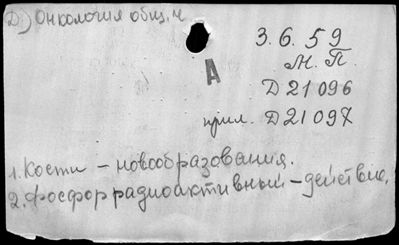 Д) Онкология общ. ч
3.6.59
М. П.
А
Д21096
прил. Д21097
1. Кости – новообразования.
2. Фосфор радиоактивный – действие.